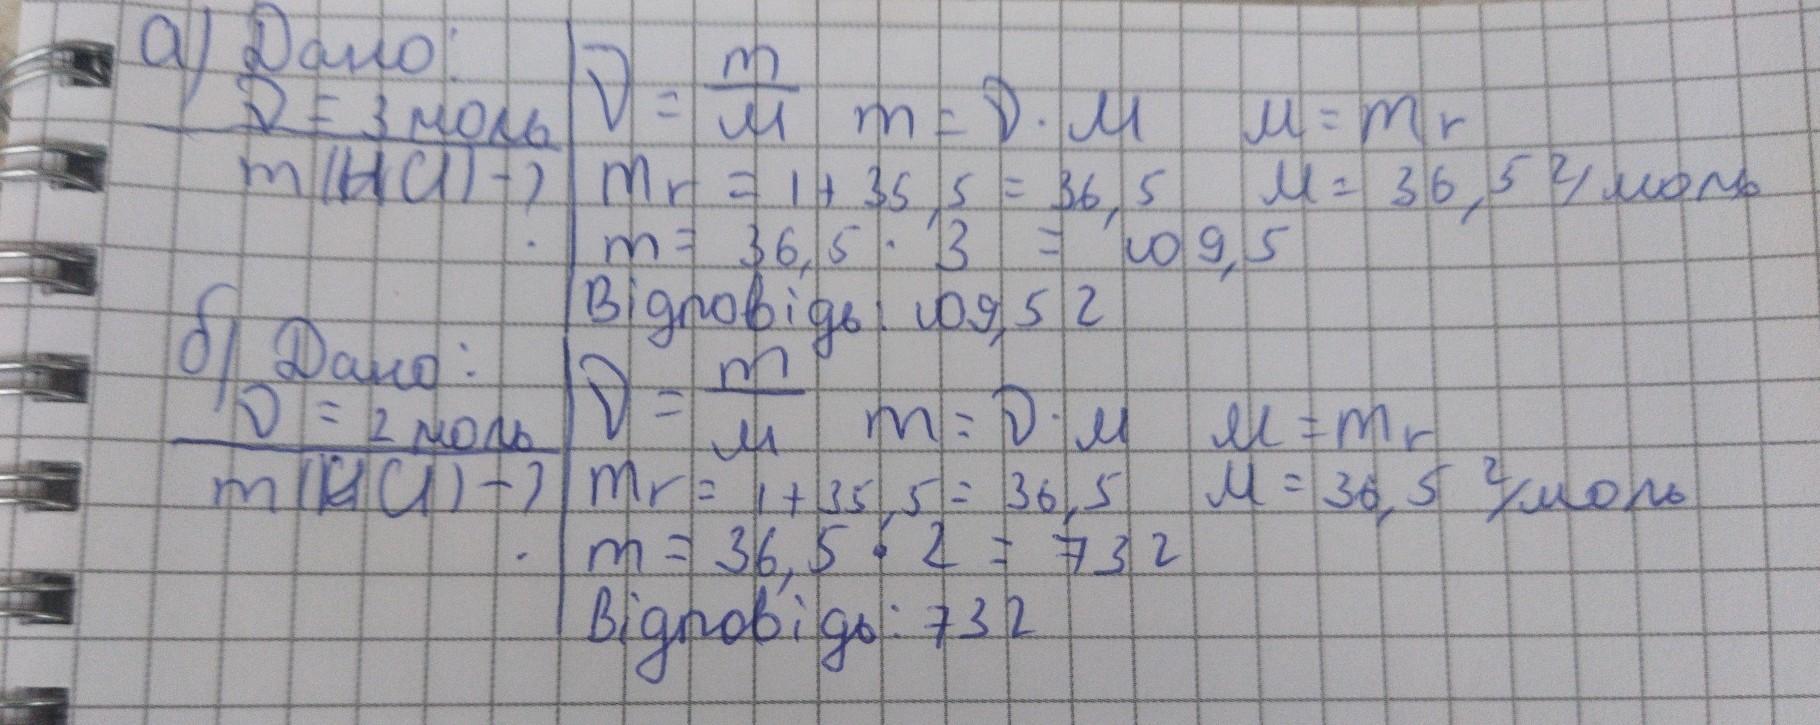 а) Дано:
ν = 3 моль
m(HCl) - ?
ν = m/M m = ν · M M = Mr
Mr = 1 + 35,5 = 36,5 M = 36,5 г/моль
m = 36,5 · 3 = 109,5
Відповідь: 109,5 г
б) Дано:
ν = 2 моль
m(HCl) - ?
ν = m/M m = ν · M M = Mr
Mr = 1 + 35,5 = 36,5 M = 36,5 г/моль
m = 36,5 · 2 = 73 г
Відповідь: 73 г